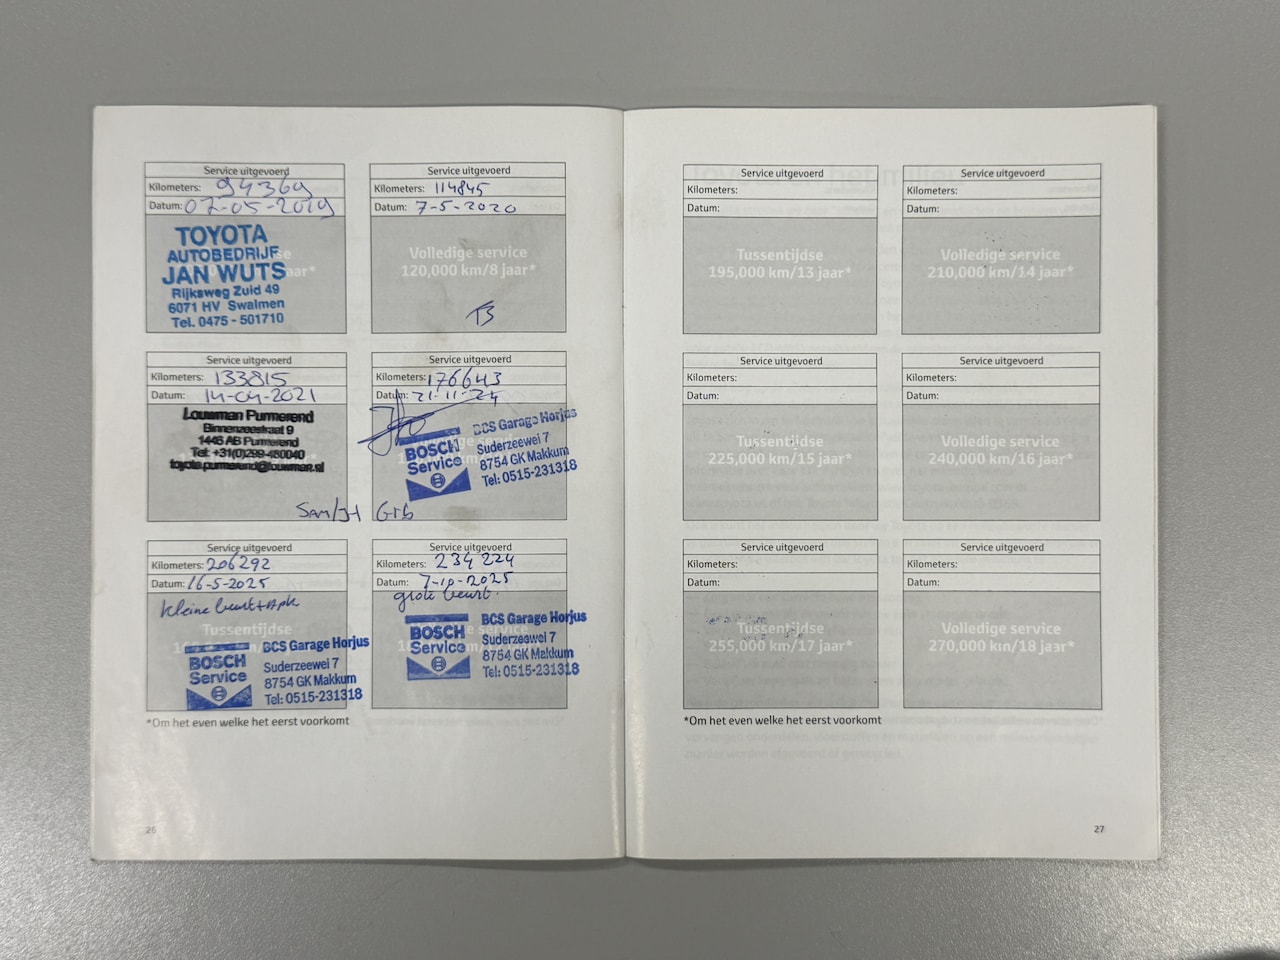 Service uitgevoerd
Kilometers: 94369
Datum: 07-05-2019
TOYOTA
AUTOBEDRIJF
JAN WUTS
Rijksweg Zuid 49
6071 HV Swalmen
Tel. 0475 - 501710
Service uitgevoerd
Kilometers: 114845
Datum: 7-5-2020
Volledige service
120,000 km/8 jaar*
TB
Service uitgevoerd
Kilometers: 133815
Datum: 14-04-2021
Louwman Purmerend
Binnenzeestraat 9
1446 AB Purmerend
Tel: +31(0)299-480040
toyota.purmerend@louwman.nl
Service uitgevoerd
Kilometers: 176643
Datum: 21-11-24
BOSCH
Service
BCS Garage Horjus
Suderzeewei 7
8754 GK Makkum
Tel: 0515-231318
Service uitgevoerd
Kilometers: 206292
Datum: 16-5-2025
kleine beurt + apk
Tussentijdse
BOSCH
Service
BCS Garage Horjus
Suderzeewei 7
8754 GK Makkum
Tel: 0515-231318
Service uitgevoerd
Kilometers: 234224
Datum: 7-10-2025
grote beurt.
BOSCH
Service
BCS Garage Horjus
Suderzeewei 7
8754 GK Makkum
Tel: 0515-231318
*Om het even welke het eerst voorkomt
26
Service uitgevoerd
Kilometers:
Datum:
Tussentijdse
195,000 km/13 jaar*
Service uitgevoerd
Kilometers:
Datum:
Volledige service
210,000 km/14 jaar*
Service uitgevoerd
Kilometers:
Datum:
Tussentijdse
225,000 km/15 jaar*
Service uitgevoerd
Kilometers:
Datum:
Volledige service
240,000 km/16 jaar*
Service uitgevoerd
Kilometers:
Datum:
Tussentijdse
255,000 km/17 jaar*
Service uitgevoerd
Kilometers:
Datum:
Volledige service
270,000 km/18 jaar*
*Om het even welke het eerst voorkomt
27